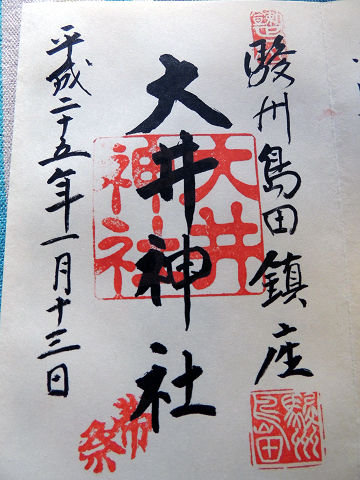 駿州島田鎮座
大井神社
大井神社
平成二十五年一月十三日
帯祭